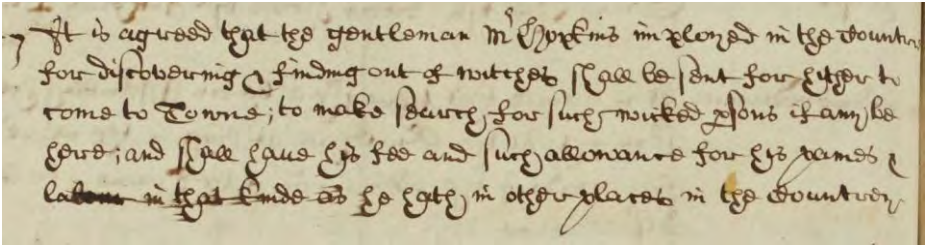 It is agreed that the gentleman Mr Hopkins imployed in the Countrey
for discovering & finding out of witches shall be sent for hither to
come to Towne; to make search for such wicked psons if any be
here; and shall have his fee and such allowance for his paines &
labour in that kinde as he hath in other places in the Countrey